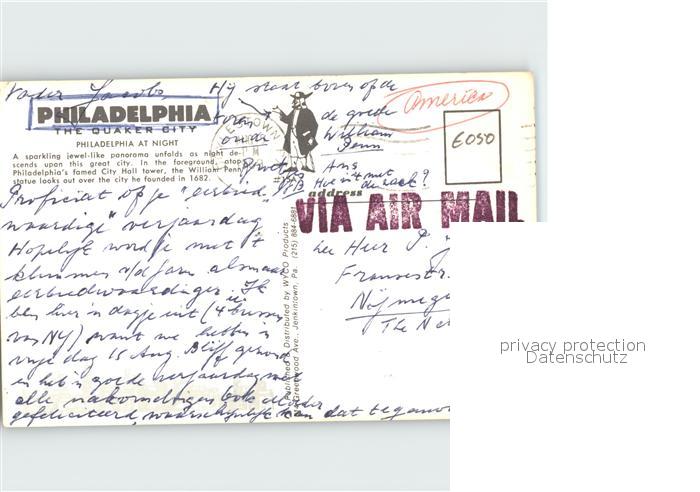 Vader Jacobs, Hij staat boven op de
PHILADELPHIA
THE QUAKER CITY
toren de goede
oude William
Penn
PHILADELPHIA AT NIGHT
A sparkling jewel-like panorama unfolds as night de-
scends upon this great city. In the foreground, atop
Philadelphia's famed City Hall tower, the William Penn
statue looks out over the city he founded in 1682.
Ans
Hoe is 't met de zaak?
address
America
E050
VIA AIR MAIL
Proficiat op je "eerbied-
waardige" verjaardag
Hopelijk word je met 't
klimmen v/d jaren alsmaar
eerbiedwaardiger. Ik
ben hier 'n dagje uit (4 uur
van NY) want we hebben
vrije dag 15 Aug. Blijf gezond
en heb 'n goede verjaardag met
alle nakomelingen
gefeliciteerd, waarschijnlijk kan dat tegen
Published & Distributed by WYCO Products
Greenwood Ave., Jenkintown, Pa. (215) 884-6881
De Heer P. J
Fransestr.
Nijmege
The Ne
privacy protection
Datenschutz